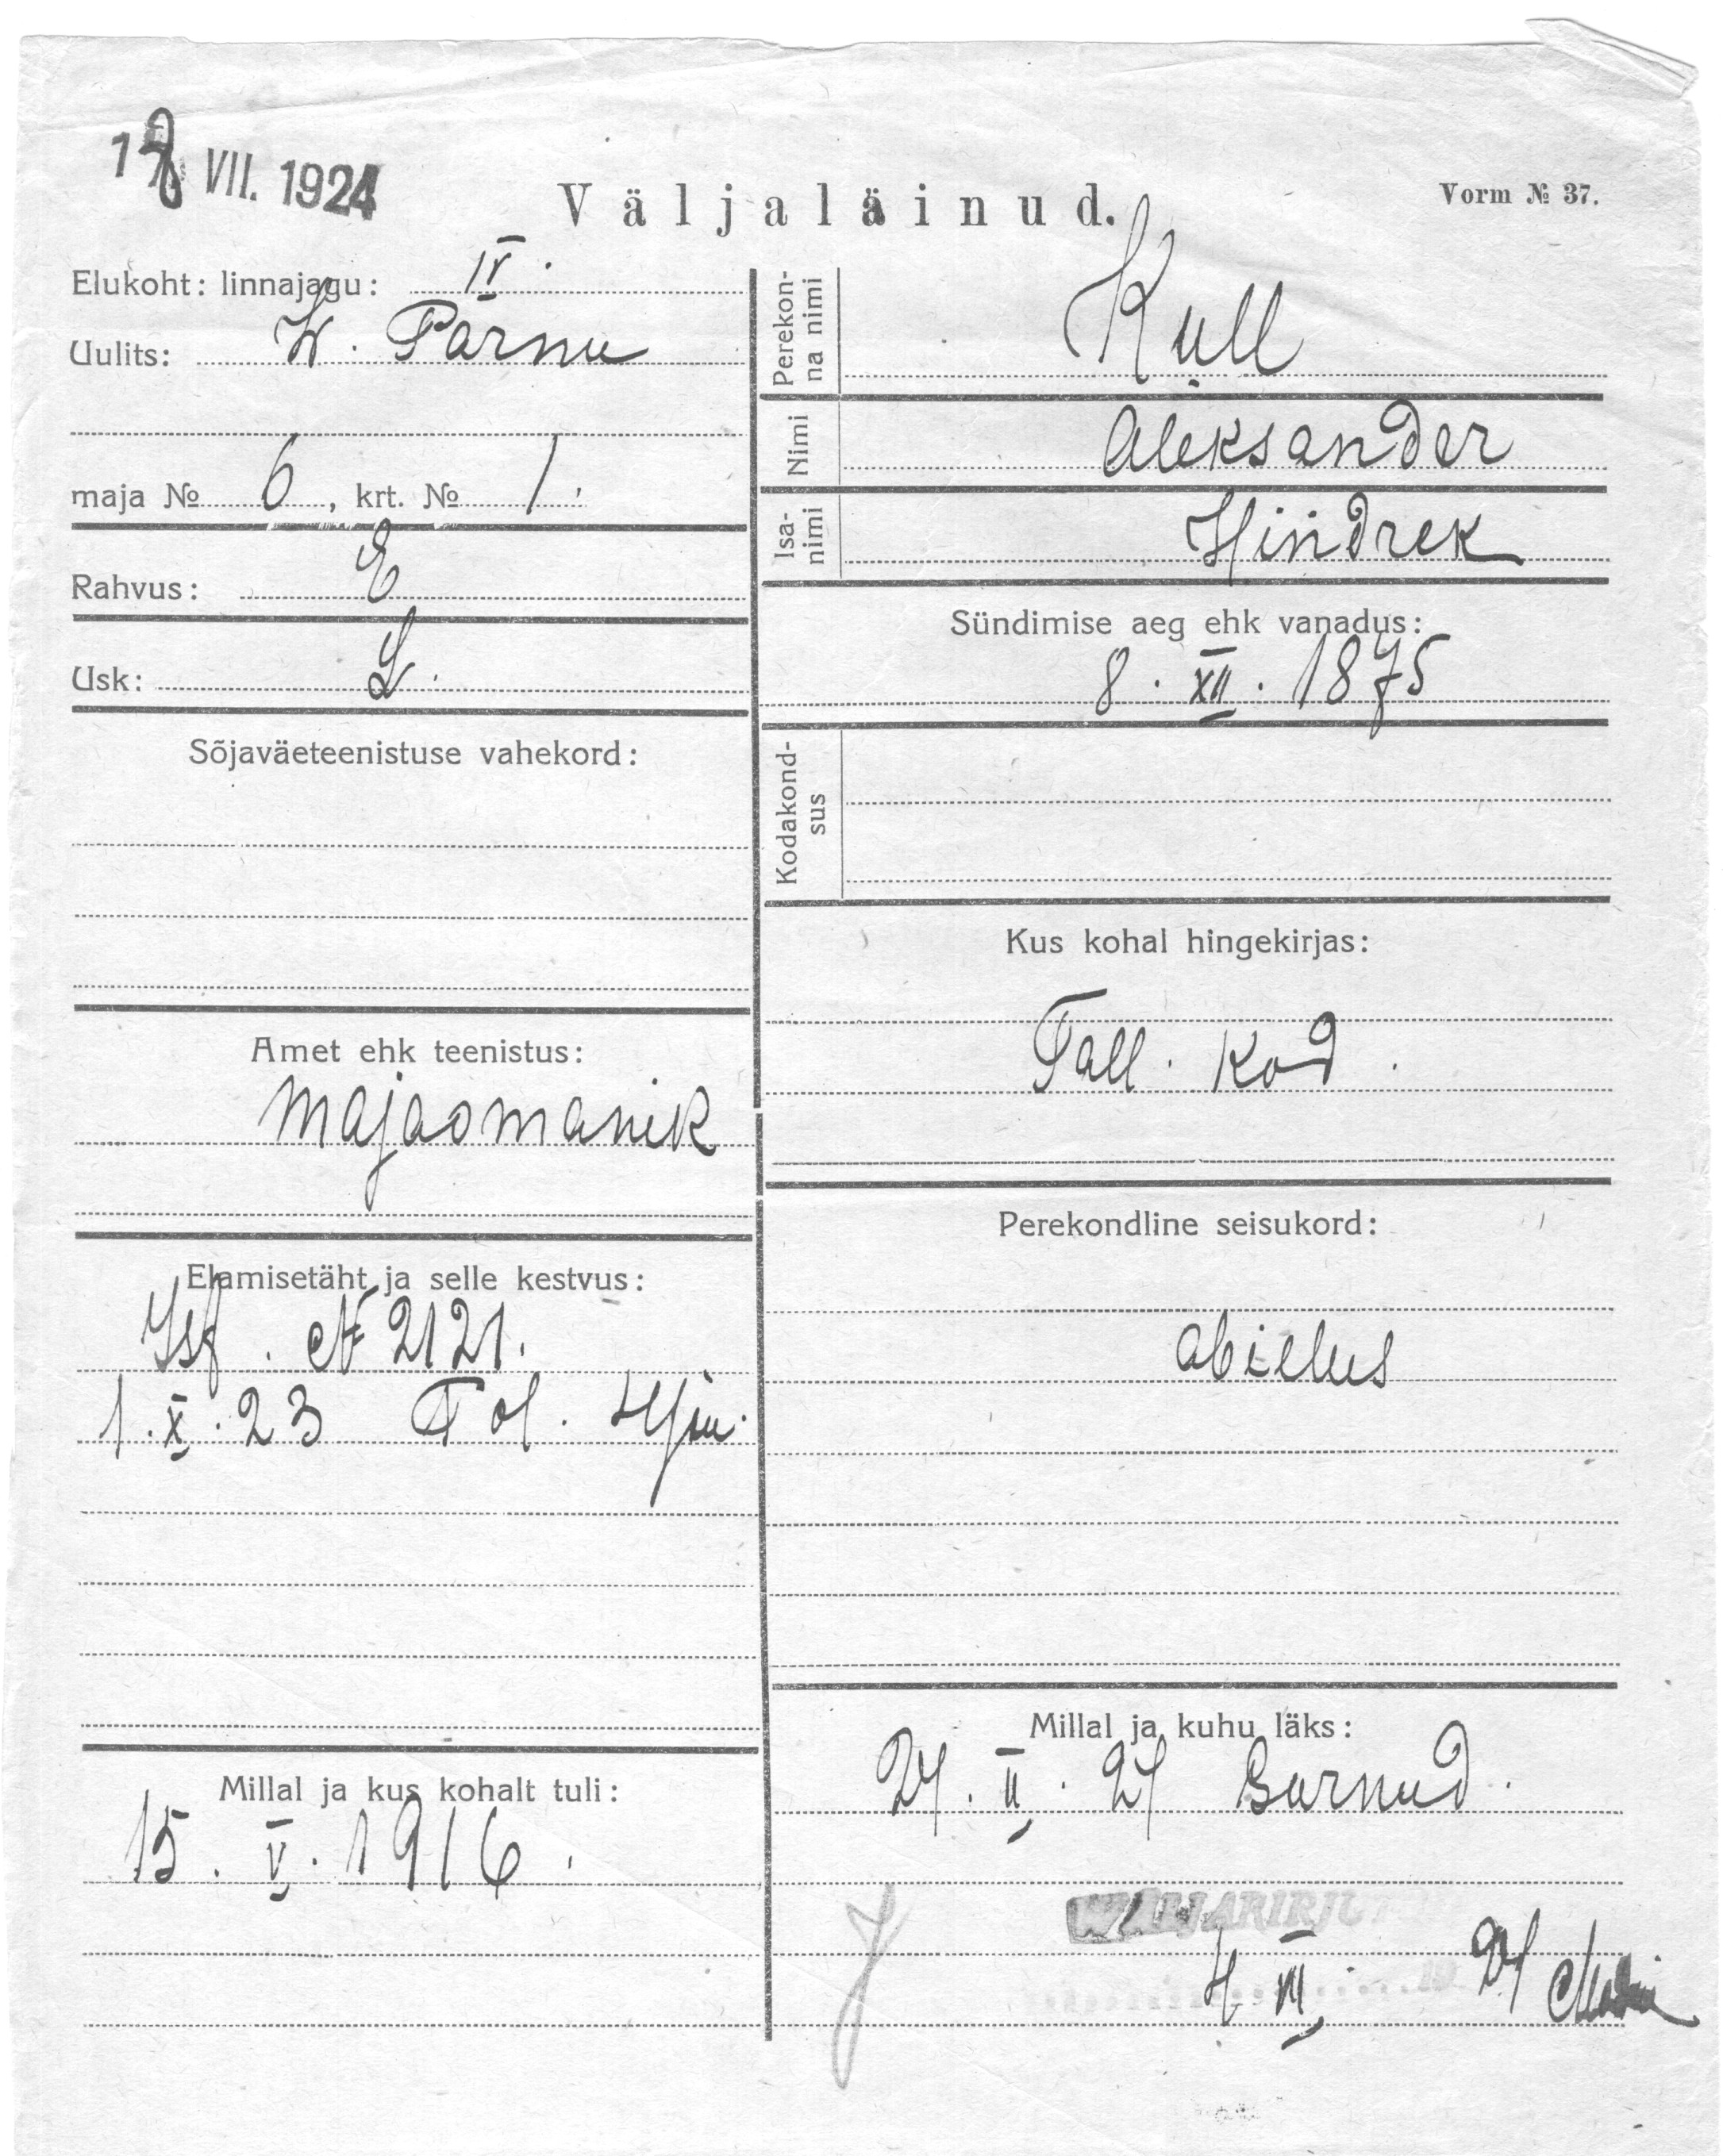 18 VII. 1924
Väljaläinud.
Vorm № 37.
Elukoht: linnajagu: IV.
Uulits: W. Pärnu
maja № 6, krt. № 1.
Rahvus: E
Usk: L.
Sõjaväeteenistuse vahekord:
Amet ehk teenistus:
Majaomanik
Elamisetäht ja selle kestvus:
Ist. № 2121.
1. X. 23 Pol.
Millal ja kus kohalt tuli:
15. V. 1916.
Perekonna nimi
Kull
Nimi
Aleksander
Isanimi
Hindrek
Sündimise aeg ehk vanadus:
8. XII. 1875
Kodakondsus
Kus kohal hingekirjas:
Tall. Kod.
Perekondline seisukord:
abielus
Millal ja kuhu läks:
24. II. 24 Surnud.
4 III. 24